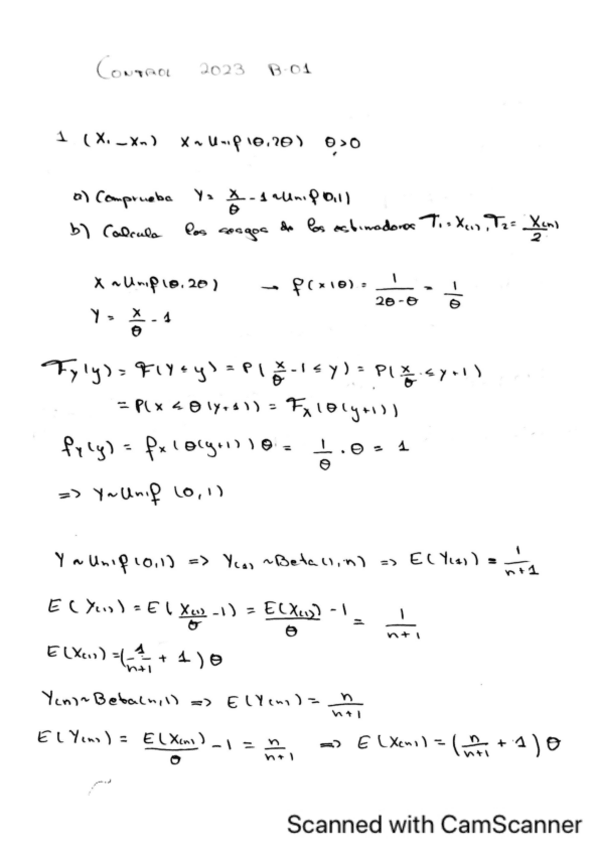 CONTROL 2023 B-01
1 (X₁ _ Xn) X ~ Unif(θ, 2θ) θ > 0
a) Comprueba Y = X/θ - 1 ~ Unif(0,1)
b) Calcula los sesgos de los estimadores T₁ = X(1), T₂ = X(n)/2
X ~ Unif(θ, 2θ) → f(x|θ) = 1/(2θ-θ) = 1/θ
Y = X/θ - 1
F_Y(y) = F(Y ≤ y) = P(X/θ - 1 ≤ y) = P(X/θ ≤ y+1)
= P(X ≤ θ(y+1)) = F_X(θ(y+1))
f_Y(y) = f_X(θ(y+1))θ = 1/θ · θ = 1
=> Y ~ Unif (0,1)
Y ~ Unif(0,1) => Y(1) ~ Beta(1,n) => E(Y(1)) = 1/(n+1)
E(Y(1)) = E(X(1)/θ - 1) = E(X(1))/θ - 1 = 1/(n+1)
E(X(1)) = (1/(n+1) + 1)θ
Y(n) ~ Beta(n,1) => E(Y(n)) = n/(n+1)
E(Y(n)) = E(X(n))/θ - 1 = n/(n+1) => E(X(n)) = (n/(n+1) + 1)θ
Scanned with CamScanner